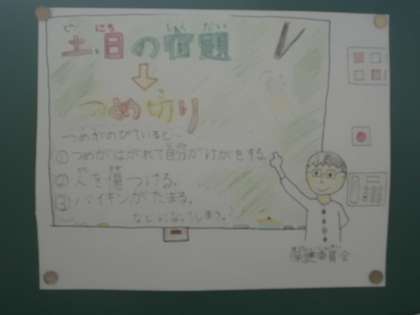 土日の宿題
つめ切り
つめがのびていると…
①つめがはがれて自分がけがをする。
②人を傷つける。
③バイキンがたまる。
などになってしまう。
保健委員会